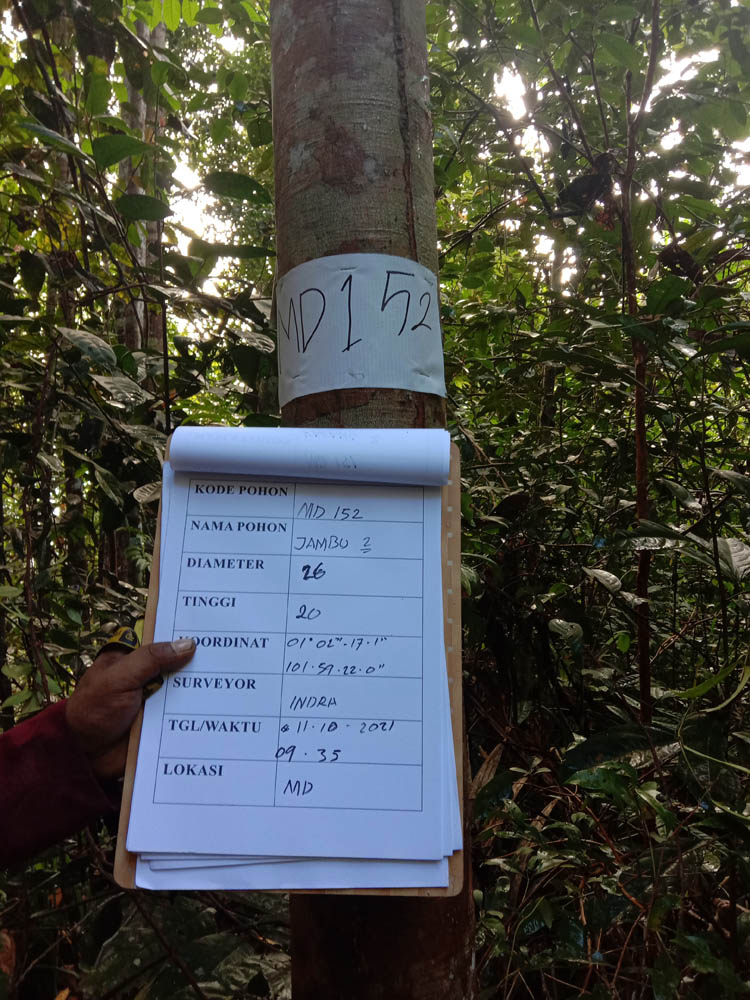 MD 152
KODE POHON MD 152
NAMA POHON JAMBU 2
DIAMETER 26
TINGGI 20
KOORDINAT 01° 02"·17·1"
101·59·22·0"
SURVEYOR INDRA
TGL/WAKTU 11·10·2021
09·35
LOKASI MD